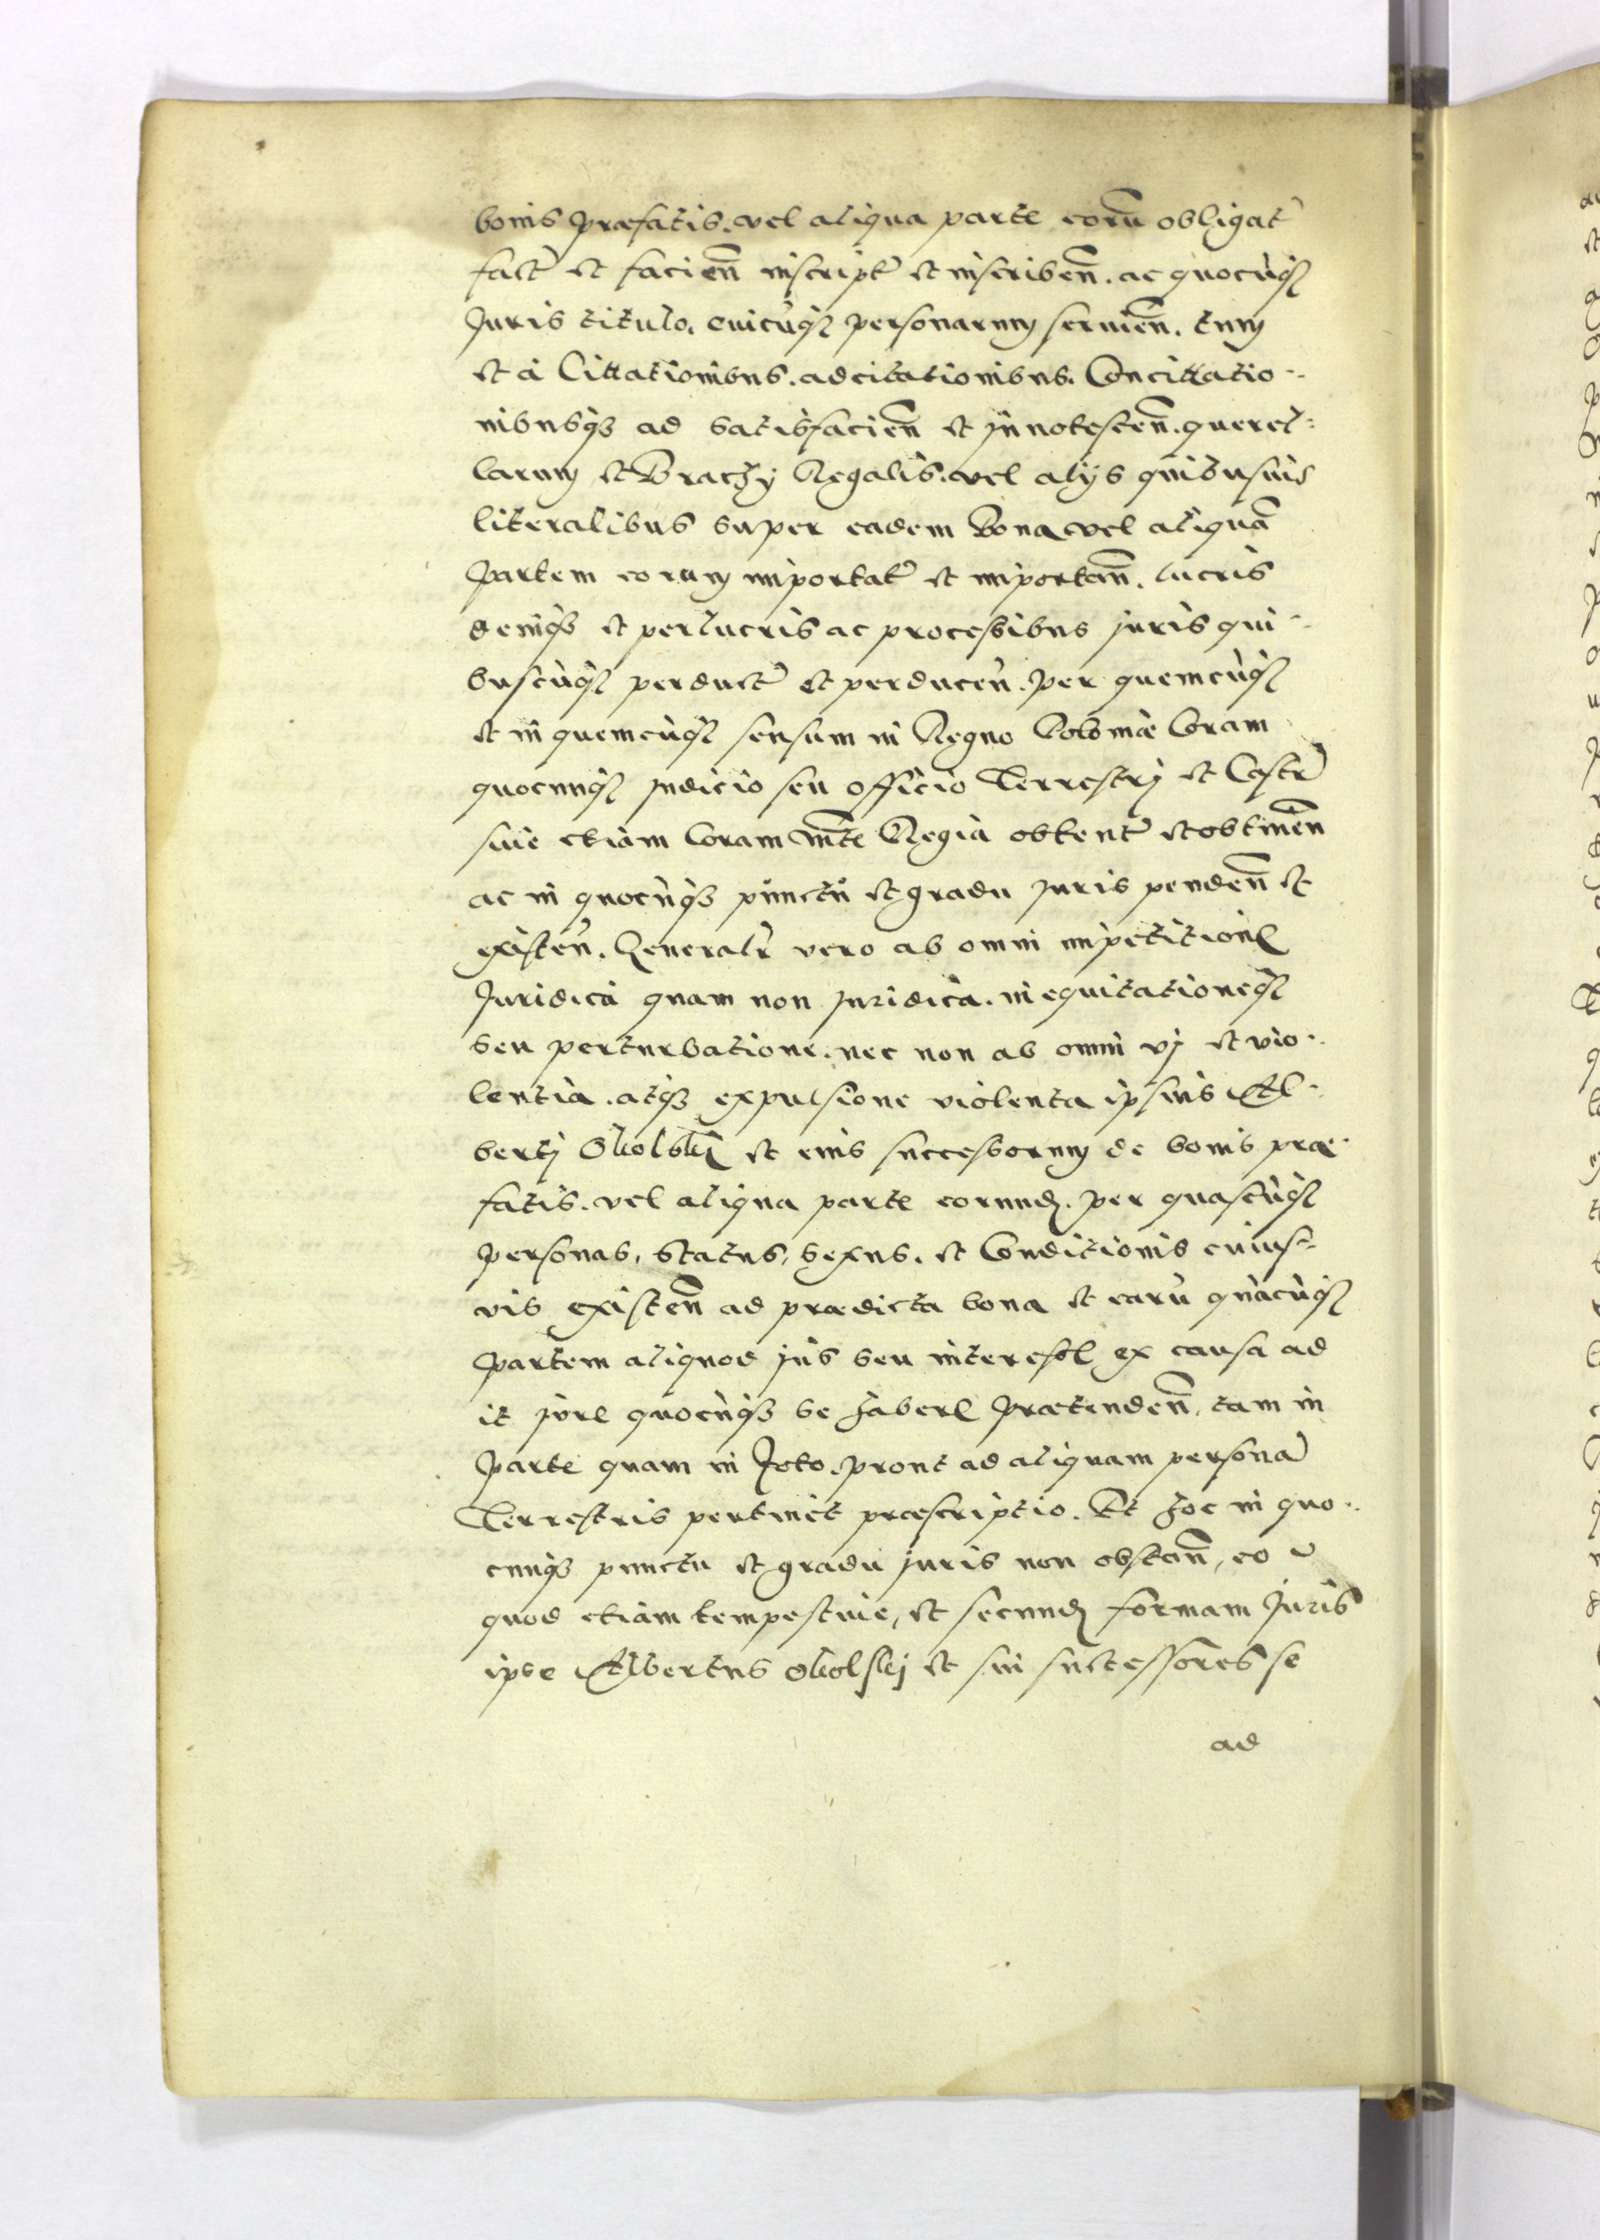 bonis præfatis. vel aliqua parte eorũ obligat̃
fact̃ et facieñ inscript̃ et inscribeñ. ac quocũq;
Juris titulo. cuicũq; personarum servieñ. tum
et à Cittationibus. adcitationibus. Concittatio-
nibusq; ad satisfacieñ et innotesceñ. querel-
larum et Brachy Regalis. vel alijs quibusuis
literalibus super eadem Bona vel aliquã
Partem eorum importat̃ et importañ. lucris
deniq; et perlucris ac processibus juris qui-
buscũq; perduct̃ et perduceñ. per quemcũq;
et in quemcũq; sensum in Regno Poloniæ Coram
quocunq; judicio seu officio Terrestrj et Castr̃
siue etiam Coram Mtte Regia obtent̃ et obtineñ
ac in quocũq; punctu et gradu juris pendeñ et
existeñ. Generalr̃ vero ab omni impetitione
Juridica quam non juridica. inequitationeq;
seu perturbatione. nec non ab omni vj et vio-
lentia. atq; expulsione violenta ipsius Al-
bertj Okolskj et eius successorum de bonis præ-
fatis. vel aliqua parte eorund. per quascũq;
personas, status, sexus. et Conditionis cuius-
vis existeñ ad prædicta bona et earũ quãcũq;
Partem aliquod jus seu interesse ex causa ad
it jure quocũq; se habere prætendeñ, tam in
Parte quam in Toto. prout ad aliquam personã
Terrestris pertinet præscriptio. Et hoc in quo-
cunq; punctu et gradu juris non obstañ, eo
quod etiam tempestiue, et secund formam Juris
ipse Albertus Okolskj et sui successores se
ad